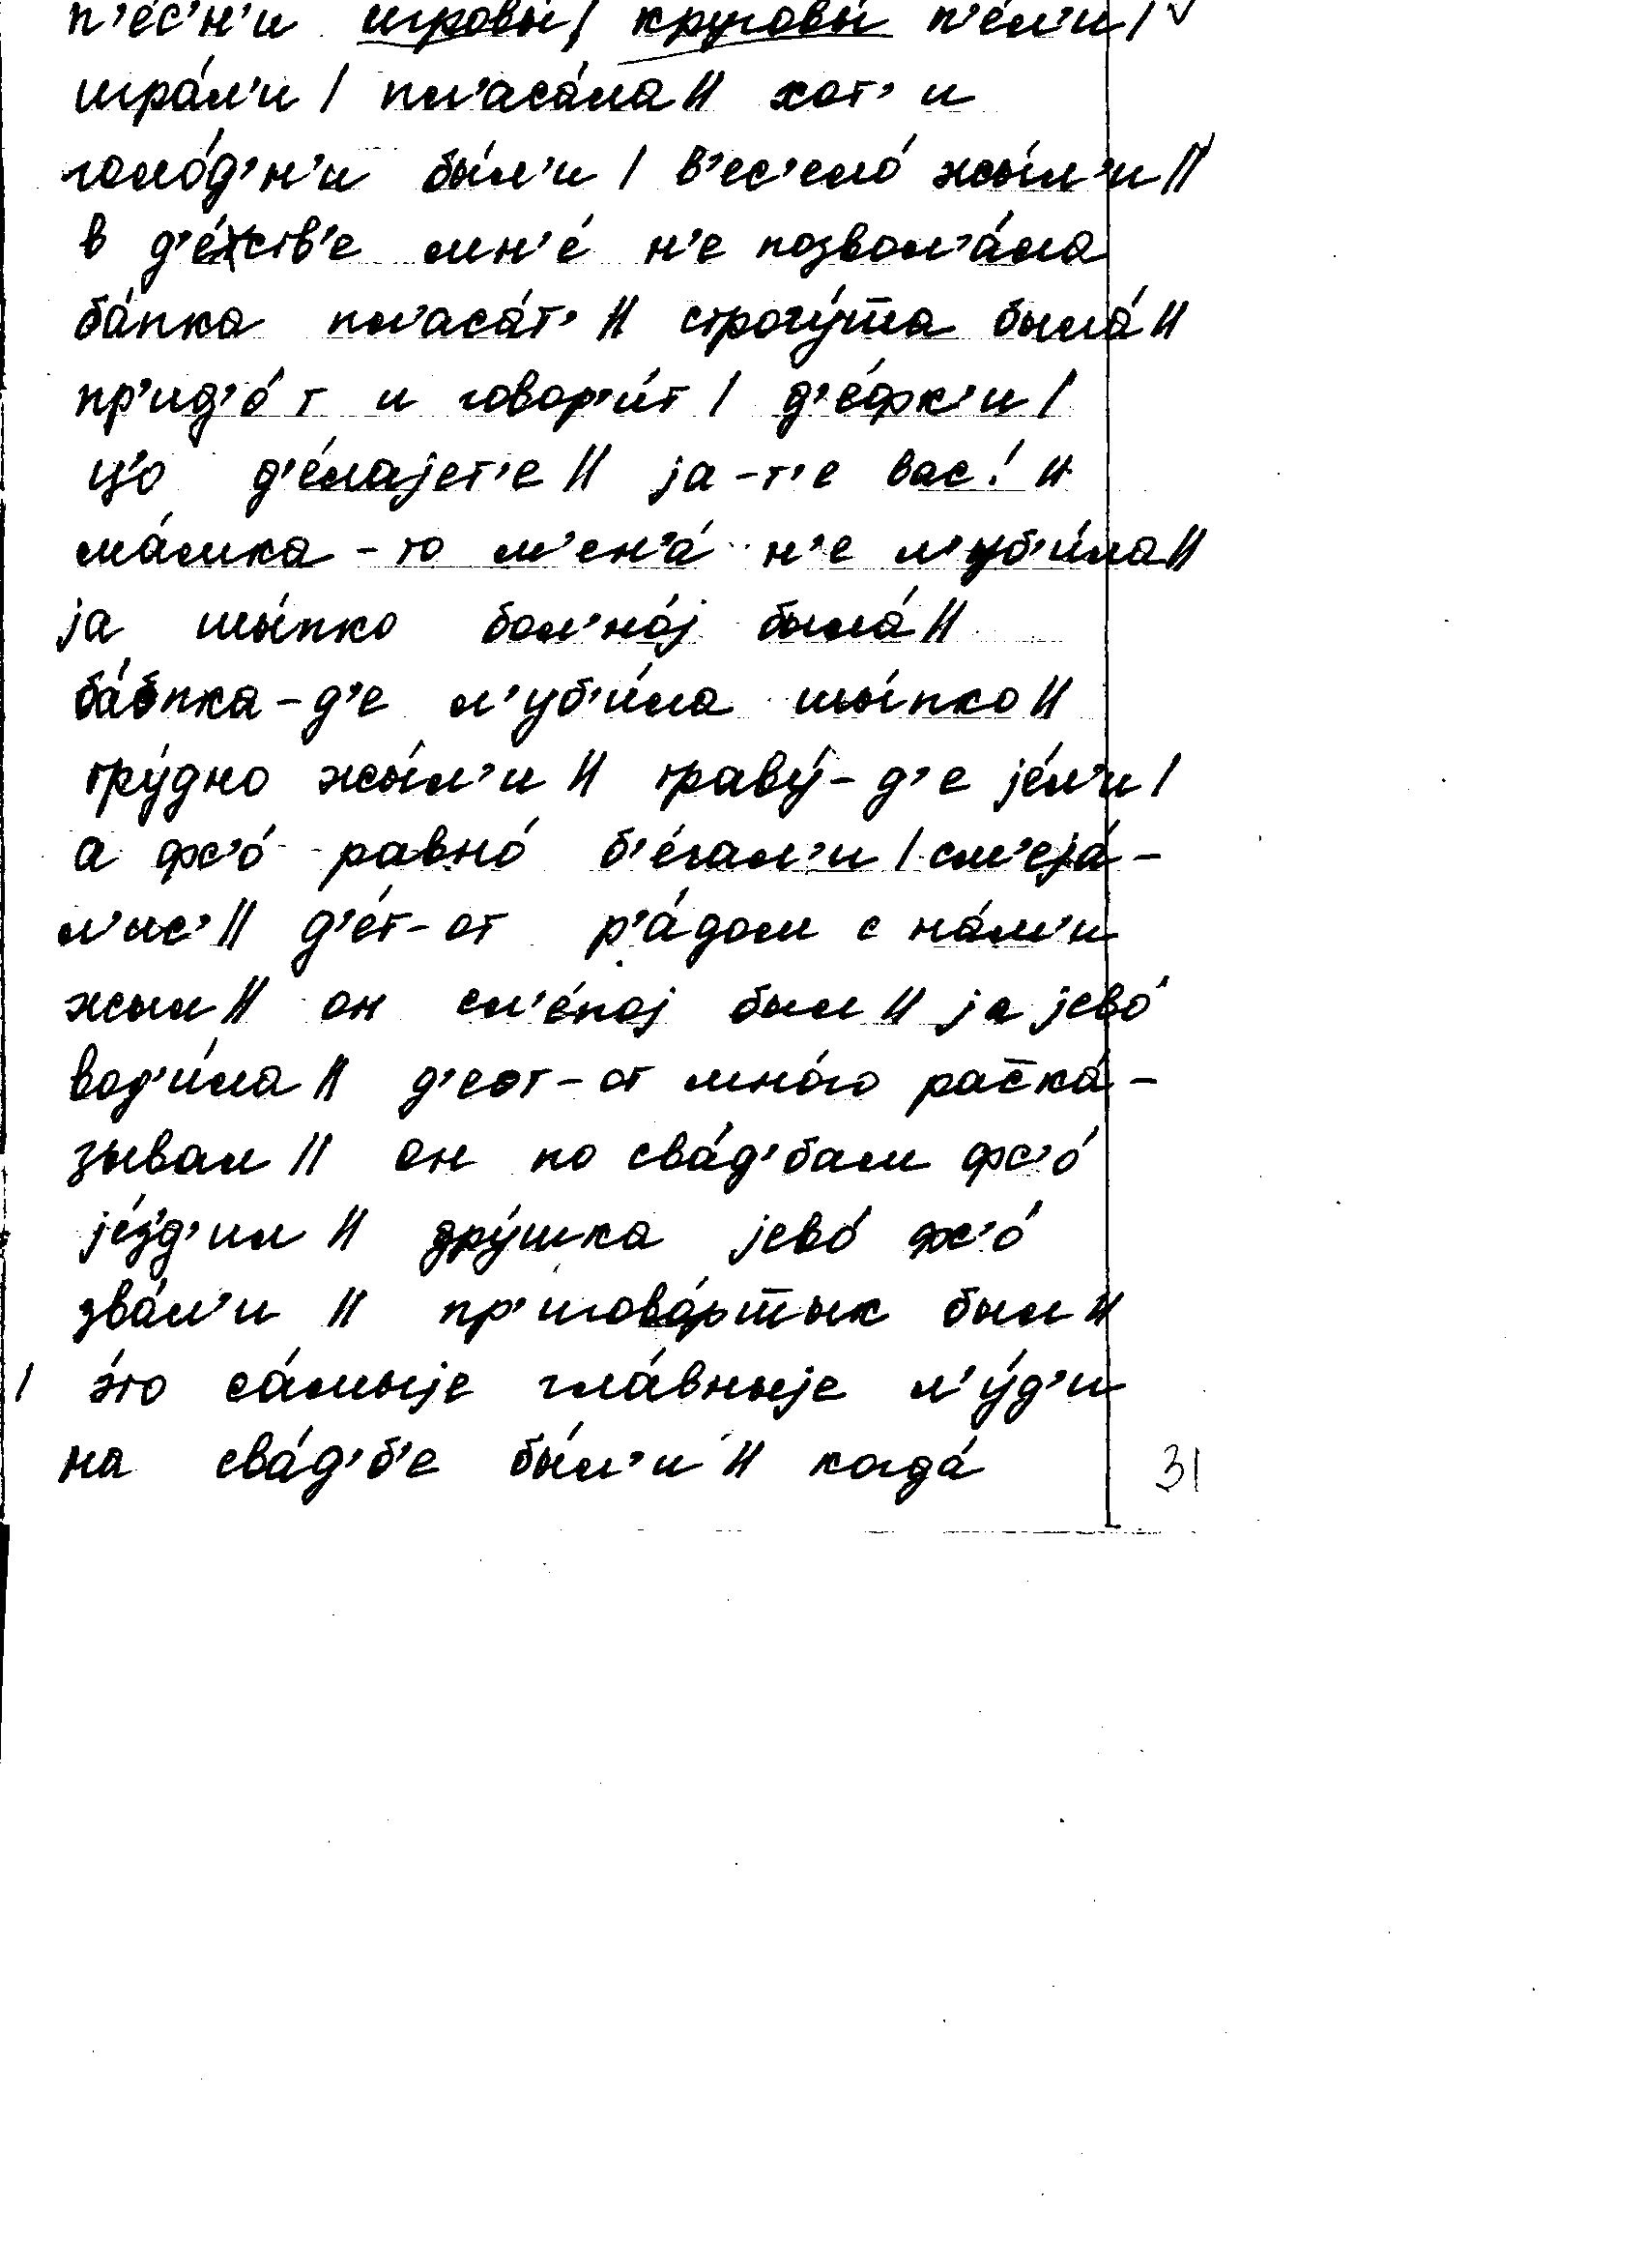 п'е́с'н'и игровы́ / круговы́ п'е́л'и /
игра́л'и / пл'аса́ла // хот' и
голо́д'н'и бы́л'и / в'ес'ело́ жы́л'и //
в д'е́тств'е мн'е́ н'е позвол'а́ла
ба́пка пл'аса́т' // строгу́ш̅а была́ //
пр'ид'о́т и говор'и́т / д'е́фк'и /
ц'о д'е́лајет'е // ја-т'е вас! //
ма́мка-то м'ен'а́ н'е л'уб'и́ла //
ја шы́пко бол'но́ј была́ //
ба́пка-д'е л'уб'и́ла шы́пко //
тру́дно жы́л'и // траву́-д'е је́л'и /
а фс'о́ равно́ б'е́гал'и / см'еја́-
л'ис' // д'е́т-от р'а́дом с на́м'и
жыл // он сл'е́пој был // ја јево́
вод'и́ла // д'ет-от мно́го рас̅ка́-
зывал // он по сва́д'бам фс'о́
је́з'д'ил // дру́шка јево́ фс'о́
зва́л'и // пр'игова́рш̅ык был //
/ э́то са́мыје гла́вныје л'у́д'и
на сва́д'б'е бы́л'и // когда́
31